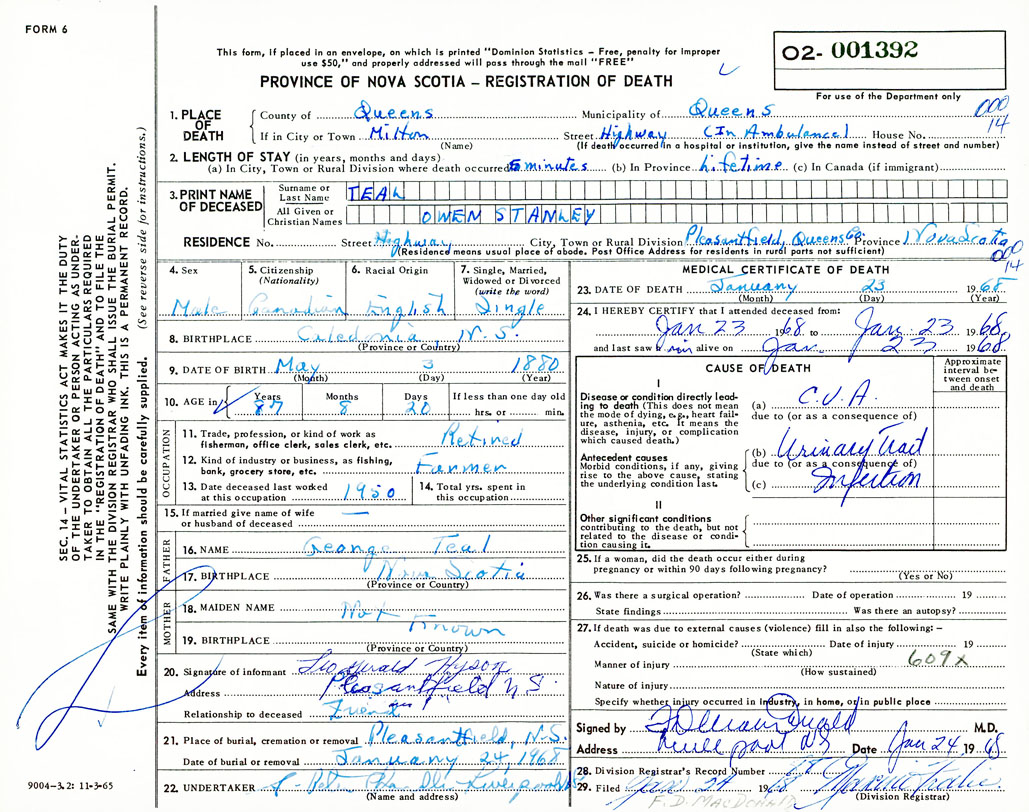 FORM 6
This form, if placed in an envelope, on which is printed "Dominion Statistics – Free, penalty for improper
use $50," and properly addressed will pass through the mail "FREE"
O2- 001392
PROVINCE OF NOVA SCOTIA – REGISTRATION OF DEATH
For use of the Department only
000
14
1. PLACE OF DEATH
County of Queens Municipality of Queens
If in City or Town Milton Street Highway (In Ambulance) House No.
(Name) (If death occurred in a hospital or institution, give the name instead of street and number)
2. LENGTH OF STAY (in years, months and days)
(a) In City, Town or Rural Division where death occurred 5 minutes (b) In Province Lifetime (c) In Canada (if immigrant)
3. PRINT NAME OF DECEASED
Surname or Last Name TEAL
All Given or Christian Names OWEN STANLEY
RESIDENCE No. Street Highway City, Town or Rural Division Pleasantfield, Queens Co. Province Nova Scotia
(Residence means usual place of abode. Post Office Address for residents in rural parts not sufficient)
000
14
4. Sex 5. Citizenship (Nationality) 6. Racial Origin 7. Single, Married, Widowed or Divorced (write the word)
Male Canadian English Single
8. BIRTHPLACE Caledonia, N.S.
(Province or Country)
9. DATE OF BIRTH May 3 1880
(Month) (Day) (Year)
10. AGE in Years Months Days If less than one day old
87 8 20 hrs. or min.
OCCUPATION
11. Trade, profession, or kind of work as
fisherman, office clerk, sales clerk, etc. Retired
12. Kind of industry or business, as fishing,
bank, grocery store, etc. Farmer
13. Date deceased last worked
at this occupation 1950
14. Total yrs. spent in
this occupation
15. If married give name of wife
or husband of deceased —
FATHER
16. NAME George Teal
17. BIRTHPLACE Nova Scotia
(Province or Country)
MOTHER
18. MAIDEN NAME Not Known
19. BIRTHPLACE
(Province or Country)
20. Signature of informant Hyson
Address Pleasantfield N S
Relationship to deceased Friend
21. Place of burial, cremation or removal Pleasantfield, N.S.
Date of burial or removal January 24, 1968
22. UNDERTAKER
(Name and address)
MEDICAL CERTIFICATE OF DEATH
23. DATE OF DEATH January 23 1968
(Month) (Day) (Year)
24. I HEREBY CERTIFY that I attended deceased from:
Jan 23 1968 to Jan. 23 1968
and last saw him alive on Jan. 23 1968
CAUSE OF DEATH
Approximate interval between onset and death
I
Disease or condition directly lead-
ing to death (This does not mean
the mode of dying, e.g., heart fail-
ure, asthenia, etc. It means the
disease, injury, or complication
which caused death.)
(a) C.V.A.
due to (or as a consequence of)
Antecedent causes
Morbid conditions, if any, giving
rise to the above cause, stating
the underlying condition last.
(b) Urinary Tract
due to (or as a consequence of)
(c) Infection
II
Other significant conditions
contributing to the death, but not
related to the disease or condi-
tion causing it.
25. If a woman, did the death occur either during
pregnancy or within 90 days following pregnancy?
(Yes or No)
26. Was there a surgical operation? Date of operation 19
State findings Was there an autopsy?
27. If death was due to external causes (violence) fill in also the following: –
Accident, suicide or homicide? Date of injury 19
(State which)
609X
Manner of injury
(How sustained)
Nature of injury
Specify whether injury occurred in industry, in home, or in public place
Signed by M.D.
Address Liverpool NS Date Jan 24 1968
28. Division Registrar's Record Number
29. Filed Jan 24 1968
(Division Registrar)
F. D. MACDONALD
SEC. 14 – VITAL STATISTICS ACT MAKES IT THE DUTY
OF THE UNDERTAKER OR PERSON ACTING AS UNDER-
TAKER TO OBTAIN ALL THE PARTICULARS REQUIRED
IN THE "REGISTRATION OF DEATH" AND TO FILE THE
SAME WITH THE DIVISION REGISTRAR WHO SHALL ISSUE THE BURIAL PERMIT.
WRITE PLAINLY WITH UNFADING INK. THIS IS A PERMANENT RECORD.
Every item of information should be carefully supplied. (See reverse side for instructions.)
9004-3.2: 11-3-65